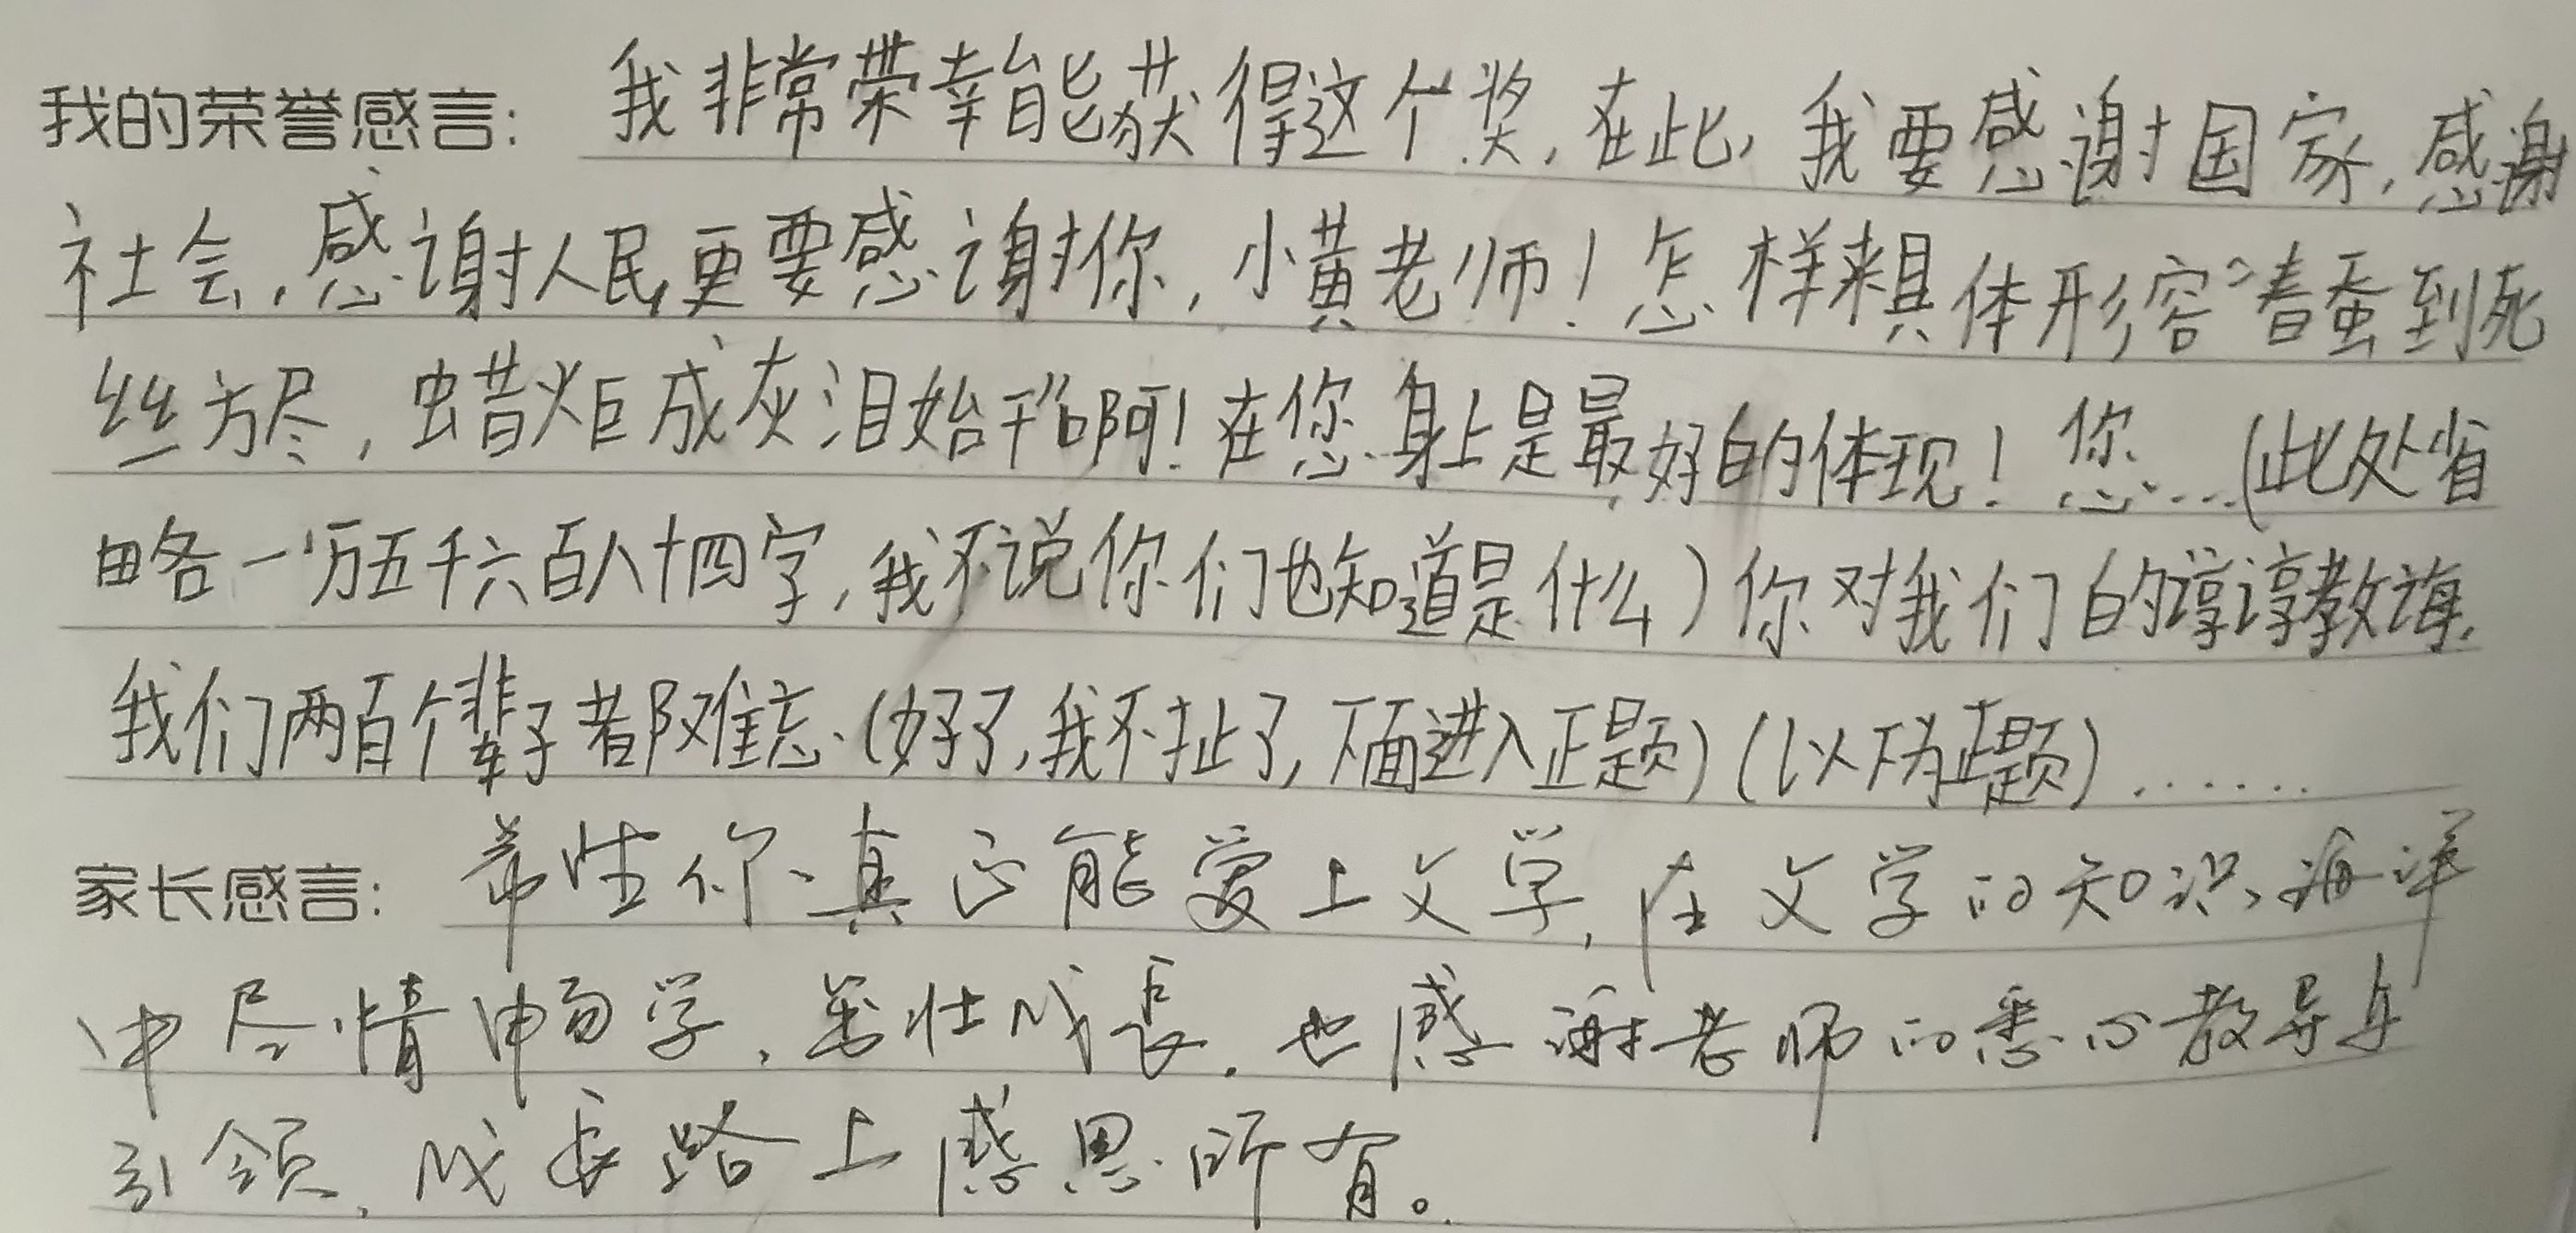 我的荣誉感言：我非常荣幸能获得这个奖，在此，我要感谢国家，感谢
社会，感谢人民，更要感谢你，小黄老师！怎样来具体形容“春蚕到死
丝方尽，蜡炬成灰泪始干”啊！在您身上是最好的体现！您……(此处省
略一万五千六百八十四字，我不说你们也知道是什么)你对我们的谆谆教诲，
我们两百个辈子都难忘.(好了，我不扯了，下面进入正题)(以下为正题)……
家长感言：希望你真正能爱上文学，在文学的知识海洋
中尽情畅学，茁壮成长，也感谢老师的悉心教导与
引领，成长路上感恩所有。